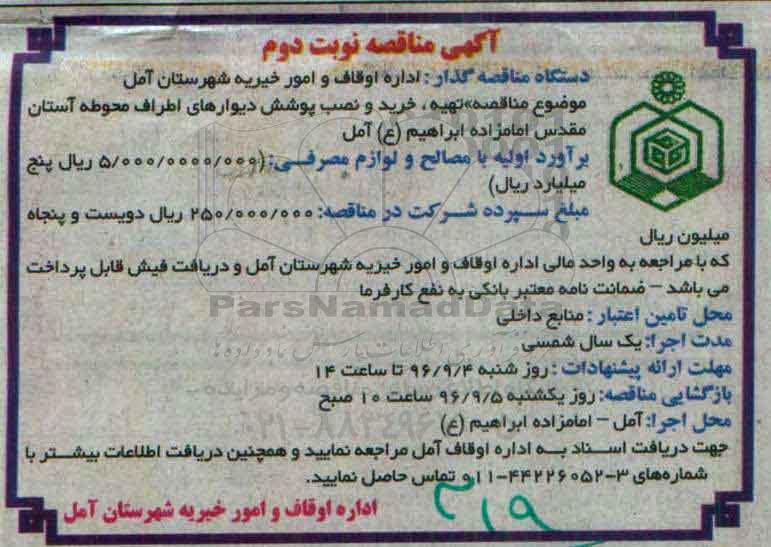 آگهی مناقصه نوبت دوم
دستگاه مناقصه گذار : اداره اوقاف و امور خیریه شهرستان آمل
موضوع مناقصه»تهیه ، خرید و نصب پوشش دیوارهای اطراف محوطه آستان
مقدس امامزاده ابراهیم (ع) آمل
برآورد اولیه با مصالح و لوازم مصرفی: (۵/۰۰۰/۰۰۰۰/۰۰۰ ریال پنج
میلیارد ریال)
مبلغ سپرده شرکت در مناقصه: ۲۵۰/۰۰۰/۰۰۰ ریال دویست و پنجاه
میلیون ریال
که با مراجعه به واحد مالی اداره اوقاف و امور خیریه شهرستان آمل و دریافت فیش قابل پرداخت
می باشد – ضمانت نامه معتبر بانکی به نفع کارفرما
ParsNamadData
محل تامین اعتبار : منابع داخلی
مدت اجرا: یک سال شمسی
مهلت ارائه پیشنهادات : روز شنبه ۹۶/۹/۴ تا ساعت ۱۴
بازگشایی مناقصه: روز یکشنبه ۹۶/۹/۵ ساعت ۱۰ صبح
محل اجرا: آمل – امامزاده ابراهیم (ع)
جهت دریافت اسناد به اداره اوقاف آمل مراجعه نمایید و همچنین دریافت اطلاعات بیشتر با
شماره‌های ۳-۴۴۲۲۶۰۵۲-۱۱و تماس حاصل نمایید.
اداره اوقاف و امور خیریه شهرستان آمل
۳۱۹